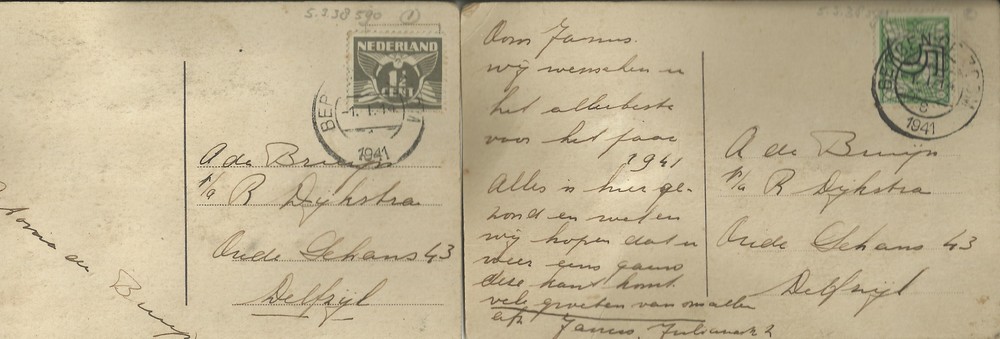 5.3.38 590 1
NEDERLAND
1½
CENT
BER
1941
A de Bruijn
p/a R Dijkstra
Oude Schans 43
Delfzijl
de Bruijn
Oom Jannes.
wij wenschen u
het allerbeste
voor het jaar
1941
Alles is hier ge-
zond en weten
wij hopen dat u
weer eens gauw
deze kant komt.
vele groeten van ons allen
Jannes, Julianastr 2
5.3.38
5
BERGEN
1941
A de Bruijn
p/a R Dijkstra
Oude Schans 43
Delfzijl